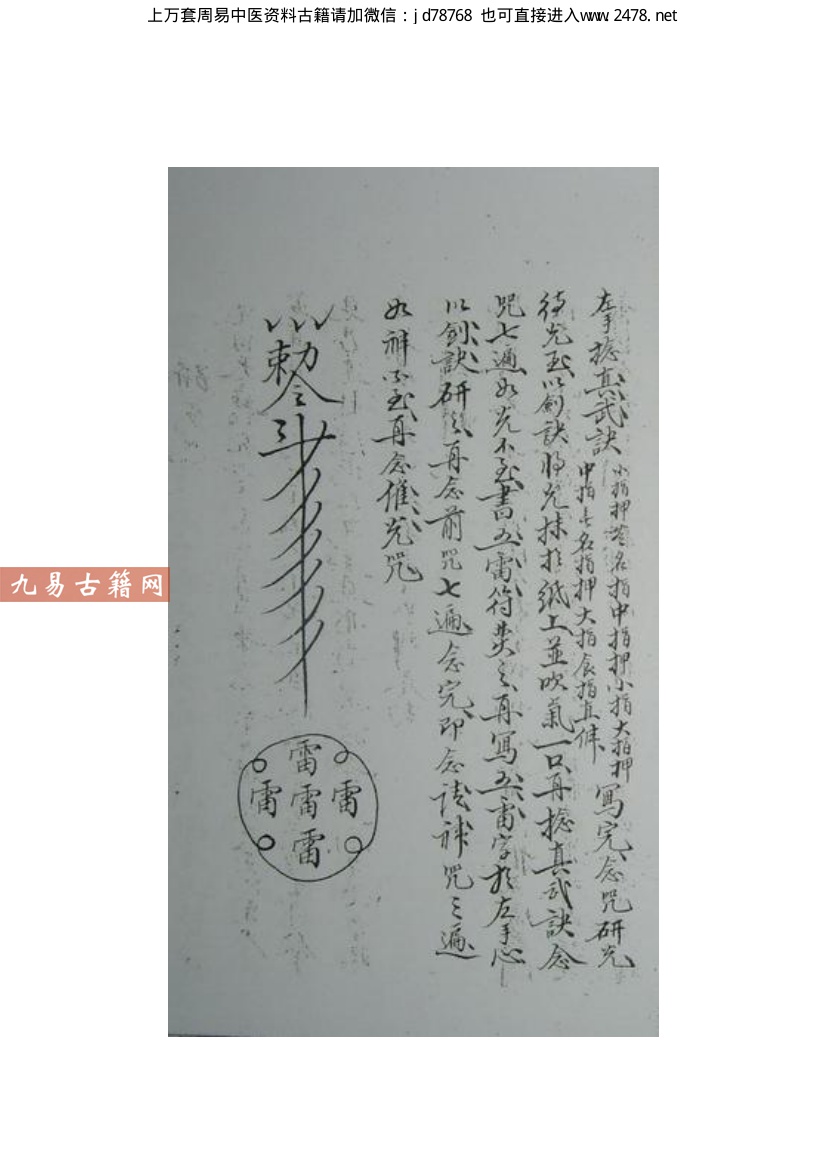 上万套周易中医资料古籍请加微信：jd78768 也可直接进入www.2478.net
左手捻真武訣
小指押無名指中指押小指大指押
中指無名指押大指食指直伸
寫完念咒研光
待光至以劍訣將光抹於紙上並吹氣一口再捻真武訣念
咒七遍如光不至書五雷符焚之再寫五雷字於左手心
以劍訣研之再念前咒七遍念完即念請神咒三遍
如神不至再念催光咒
勅令
雷
雷雷雷
雷
九易古籍网